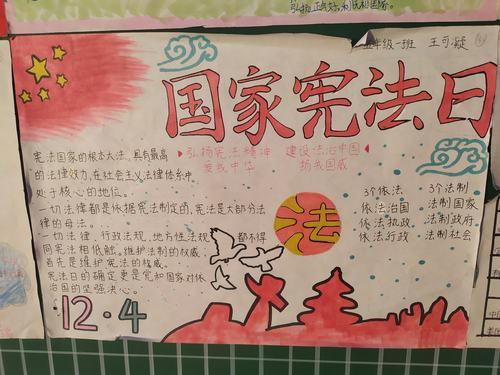 弘扬正大好,利民和国家。
五年级一班 王可凝
国家宪法日
弘扬宪法精神 建设法治中国
爱我中华 扬我国威
宪法国家的根本大法,具有最高
的法律效力,在社会主义法律体系中
处于核心的地位。
一切法律都是依据宪法制定的,宪法是大部分法
律的母法。
一切法律,行政法规,地方性法规 都不得
同宪法相低触。维护法制的权威;
首先是维护宪法的权威。
宪法日的确定更是党和国家对依
治国的坚强决心。
法
3个依法 3个法制
依法治国 法制国家
依法执政 法制政府
依法行政 法制社会
12·4